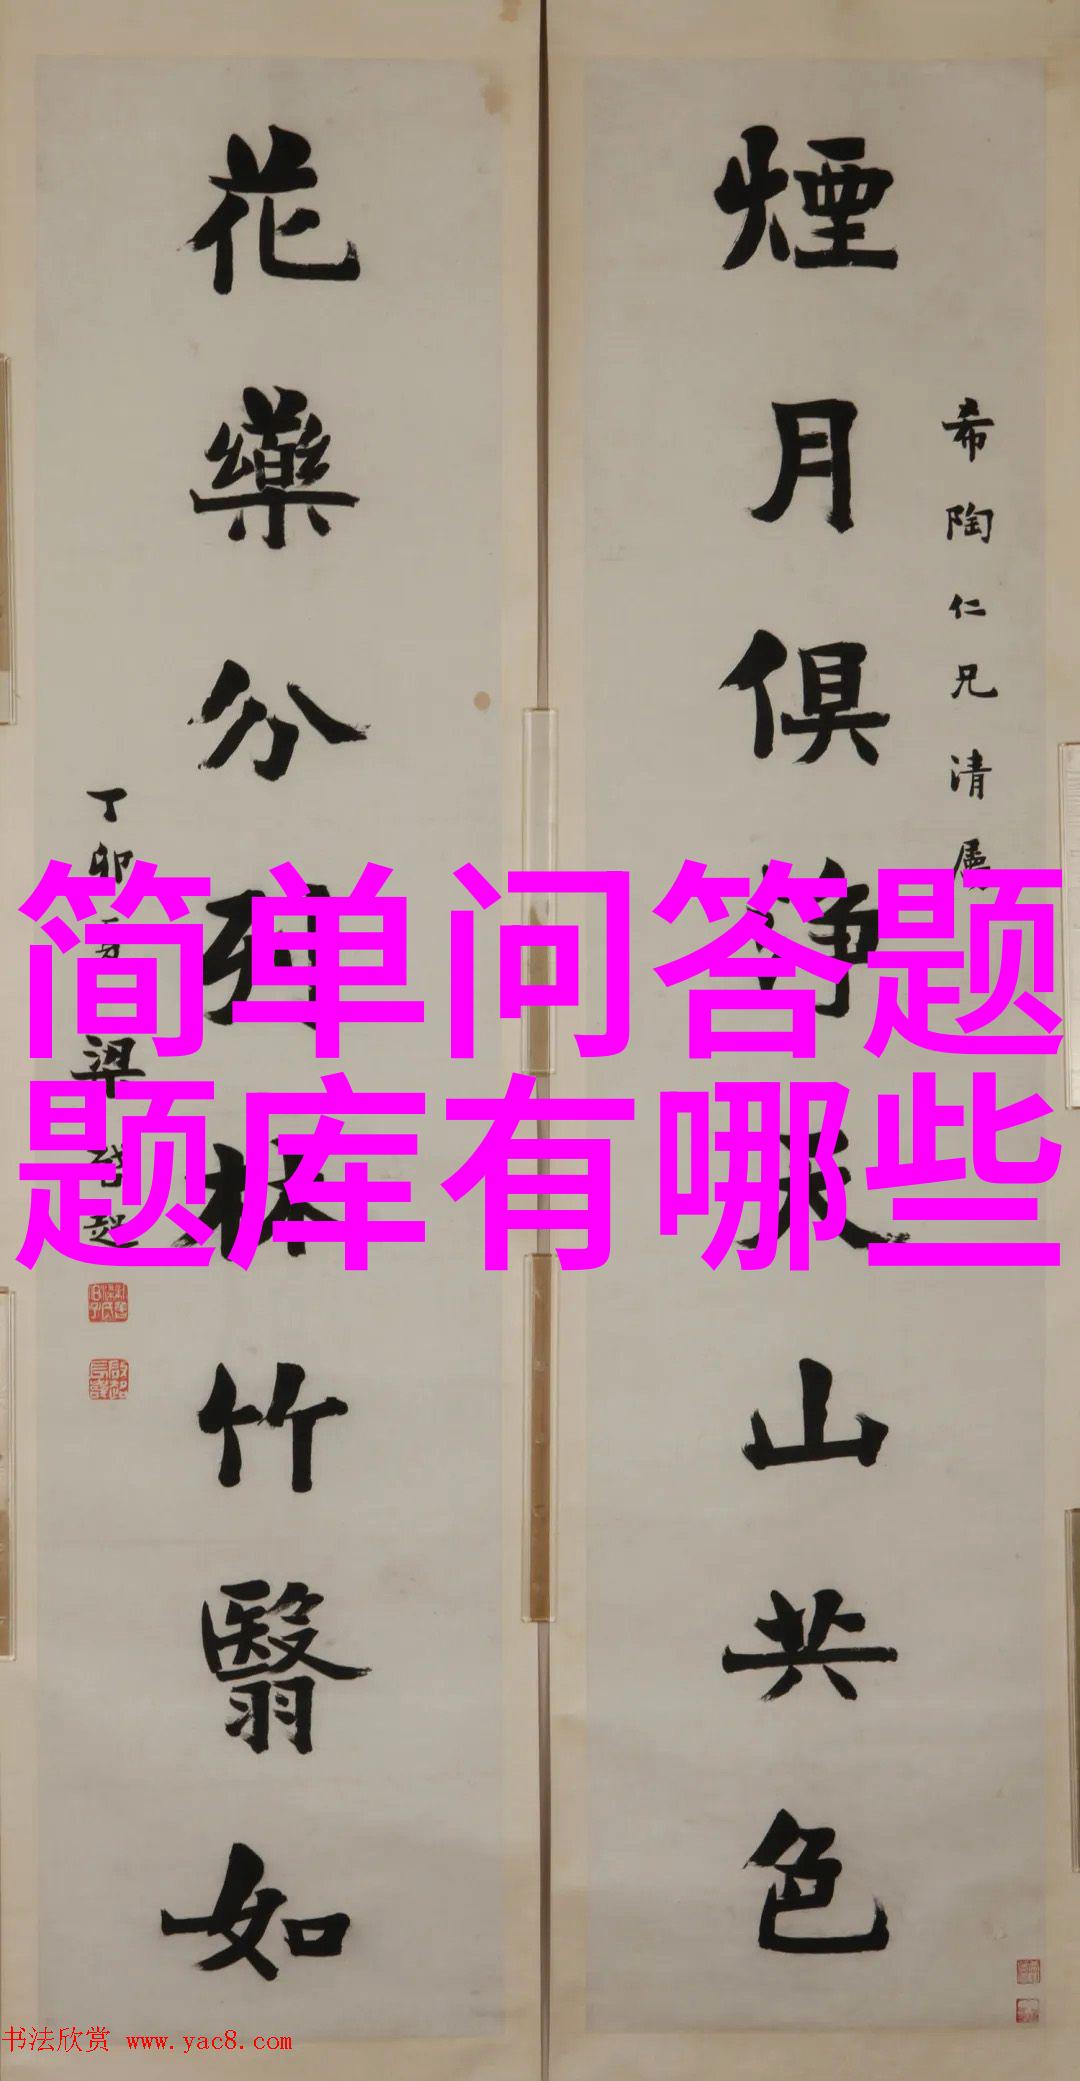 希陶仁兄清屬
煙月俱天山共色
花藥分列林竹翳如
丁卯
梁啟超
简单问答题
题库有哪些
书法欣赏 www.yac8.com